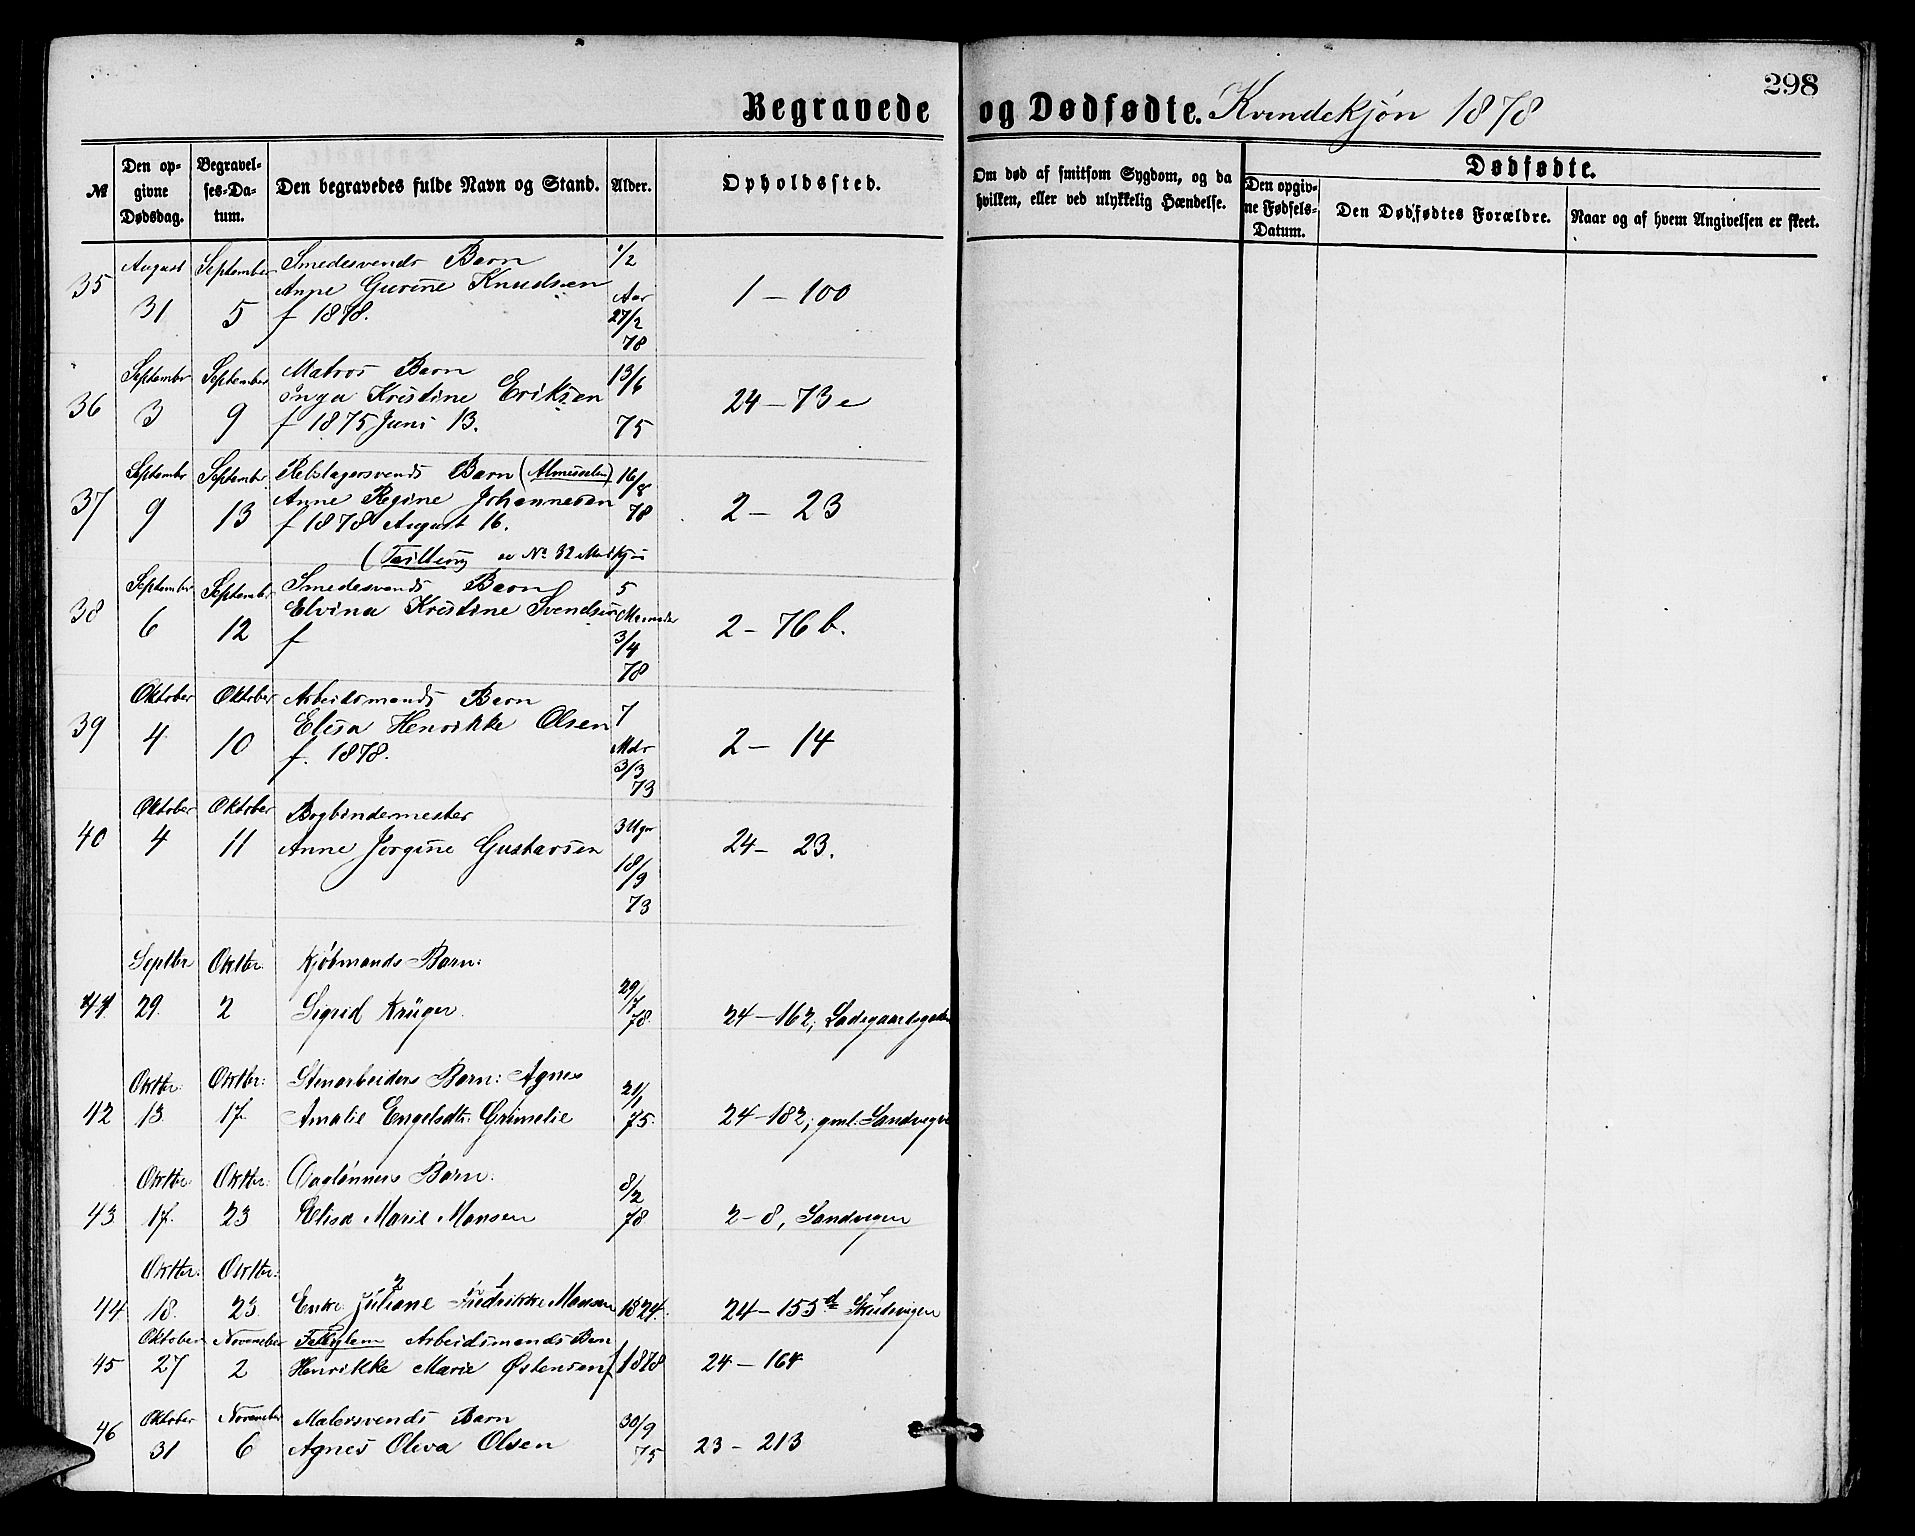 298
Begravede og Dødfødte. Kvindekjøn 1878
№
Den opgivne Dødsdag.
Begravelses-Datum.
Den begravedes fulde Navn og Stand.
Alder.
Opholdssted.
Om død af smitsom Sygdom, og da hvilken, eller ved ulykkelig Hændelse.
Dødfødte.
Den opgivne Fødsels-Datum.
Den Dødfødtes Forældre.
Naar og af hvem Angivelsen er skeet.
35 August 31 September 5 Smedesvends Barn
Anne Gurine Knudsen
f 1878. 1/2 Aar 27/2 78 1 — 100
36 September 3 September 9 Matros Barn
Inga Kristine Eriksen
f 1875 Juni 13. 13/6 75 24 — 73 e
37 September 9 September 13 Reslagersvends Barn
Anne Regine Johannesen
f 1878 August 16. 16/8 78 2 — 23
(Tvilling se No 32 Mandkjøn
38 September 6 September 12 Smedesvends Barn
Elvina Kristine Svendsen
f 5 Maaneder 3/4 78 2 — 76 b.
39 Oktober 4 Oktober 10 Arbeidsmands Barn
Elisa Henrikke Olsen
f. 1878. 7 Mdr 3/3 73 2 — 14
40 Oktober 4 Oktober 11 Bogbindermester
Anne Jorgine Gustavsen 3 Uger 18/9 73 24 — 23.
41 Septbr 29. Oktbr. 2 Kjøbmands Barn:
Sigrid Krüger. 29/7 78. 24 — 162; Ladegaardsgaden
42 Oktbr: 13. Oktbr: 17. Stenarbeiders Barn: Agnes
Amalie Engelsdtr: Grimelie 21/1 75. 24 — 182; gml: Sandvegve
43 Oktbr: 17. Oktbr: 23 Daglønners Barn:
Elisa Marie Monsen 8/2 78 2 — 8, Sandvegen
44 Oktbr: 18. Oktbr: 23 Enke Juliane Fredrikke Monsen 1824. 24 — 153 d Skudevigen
45 Oktober 27 November 2 Arbeidsmands Barn
Henrikke Marie Østensen f 1878 24 — 164
46 Oktober 31 November 6 Malersvends Barn
Agnes Oleva Olsen 30/9 75 23 — 213